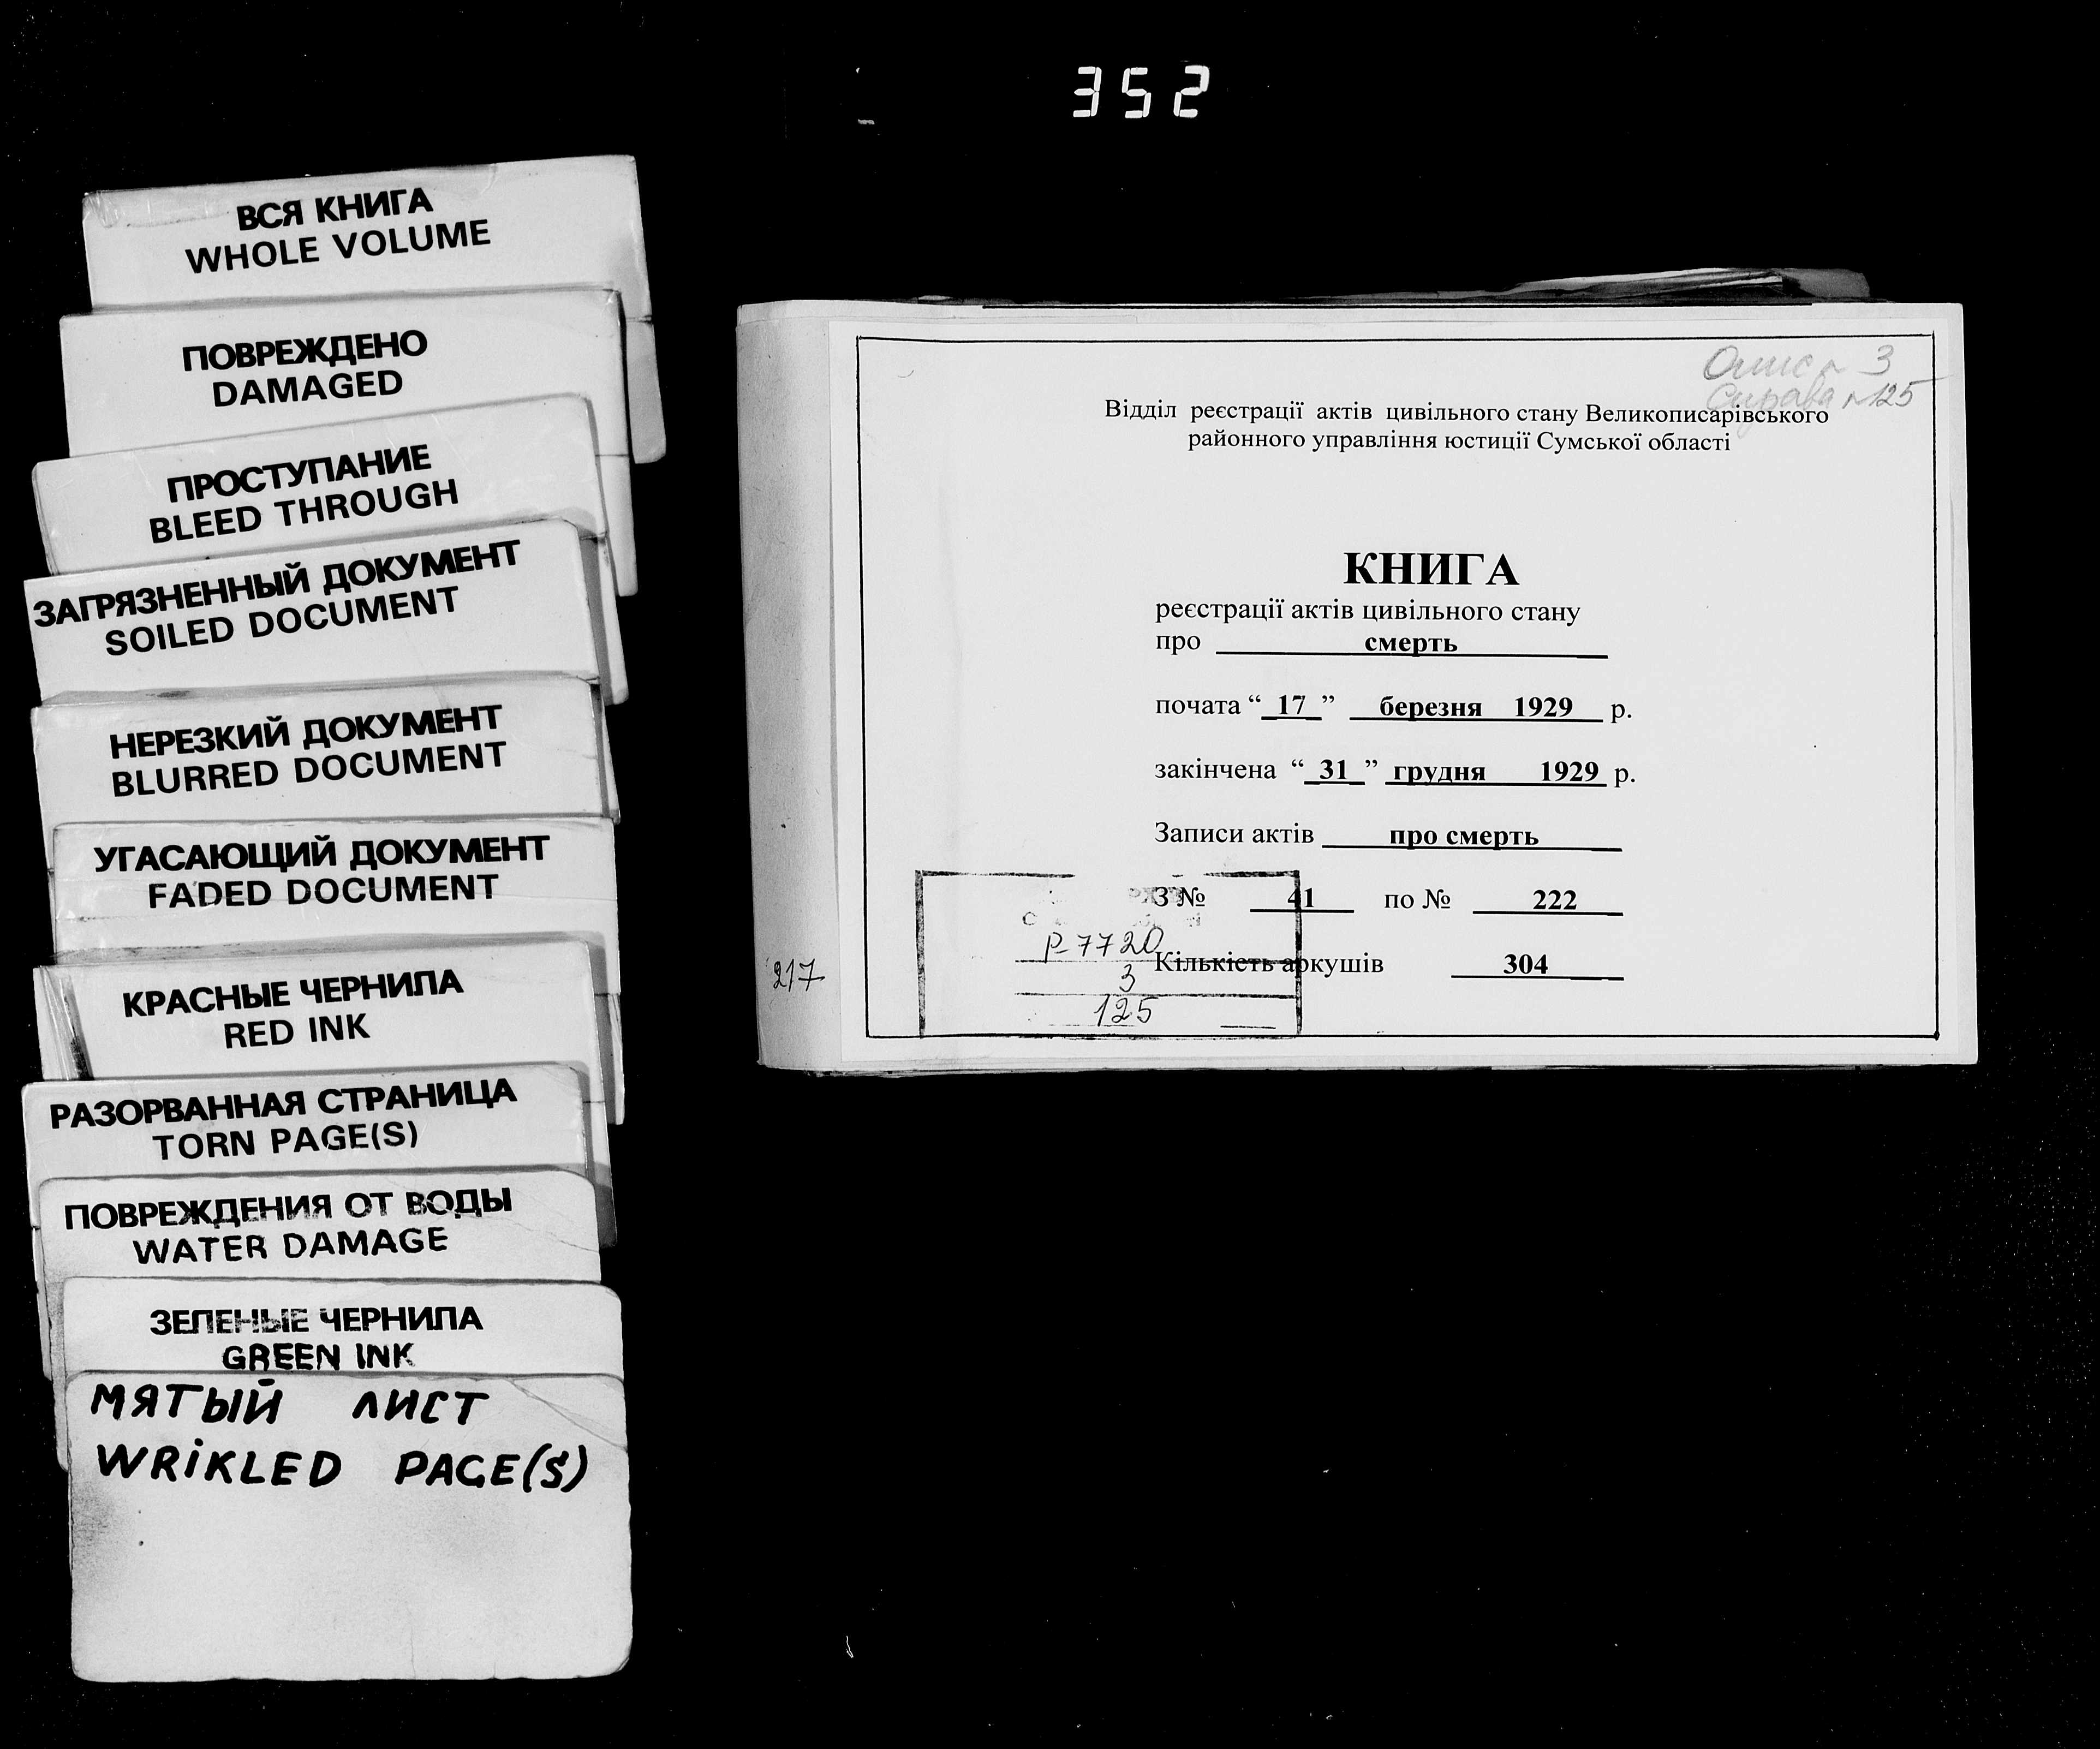 352
ВСЯ КНИГА
WHOLE VOLUME
ПОВРЕЖДЕНО
DAMAGED
ПРОСТУПАНИЕ
BLEED THROUGH
ЗАГРЯЗНЕННЫЙ ДОКУМЕНТ
SOILED DOCUMENT
НЕРЕЗКИЙ ДОКУМЕНТ
BLURRED DOCUMENT
УГАСАЮЩИЙ ДОКУМЕНТ
FADED DOCUMENT
КРАСНЫЕ ЧЕРНИЛА
RED INK
РАЗОРВАННАЯ СТРАНИЦА
TORN PAGE(S)
ПОВРЕЖДЕНИЯ ОТ ВОДЫ
WATER DAMAGE
ЗЕЛЕНЫЕ ЧЕРНИЛА
GREEN INK
МЯТЫЙ ЛИСТ
WRIKLED PAGE(S)
217
Опис № 3
Справа № 125
Відділ реєстрації актів цивільного стану Великописарівського
районного управління юстиції Сумської області
КНИГА
реєстрації актів цивільного стану
про смерть
почата “ 17 ” березня 1929 р.
закінчена “ 31 ” грудня 1929 р.
Записи актів про смерть
З № 41 по № 222
Кількість аркушів 304
Р-7720
3
125